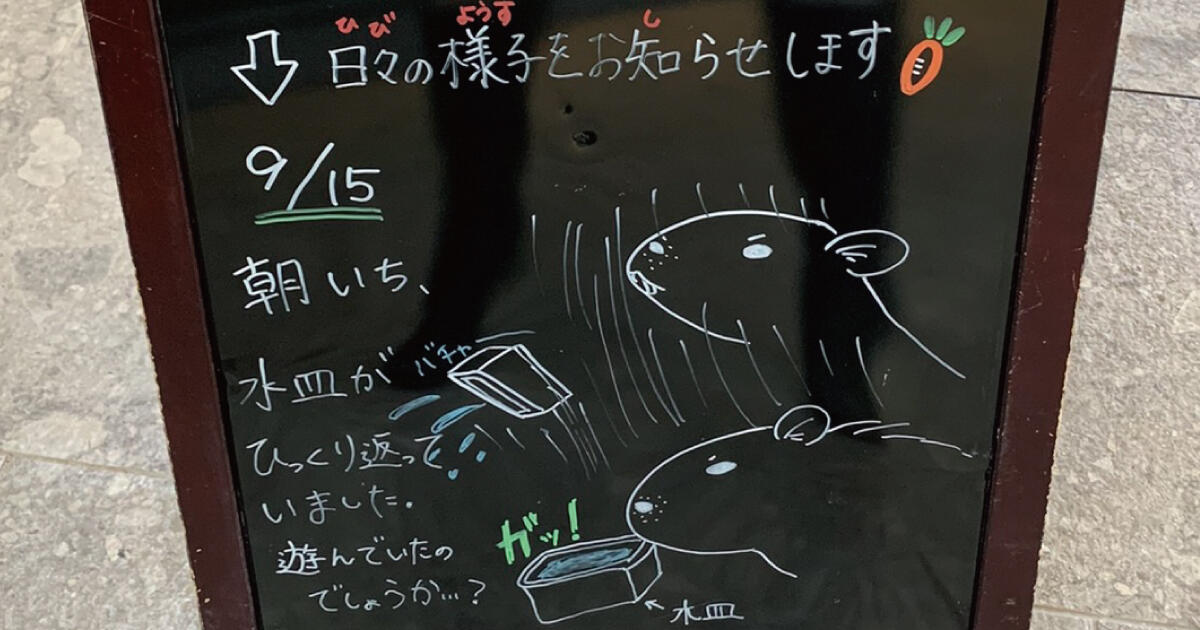 ひび ようす し
↓ 日々の様子をお知らせします
9/15
朝いち、
水皿が
バチャ
ひっくり返って
いました.
遊んでいたの
でしょうか…?
ガッ!
←水皿